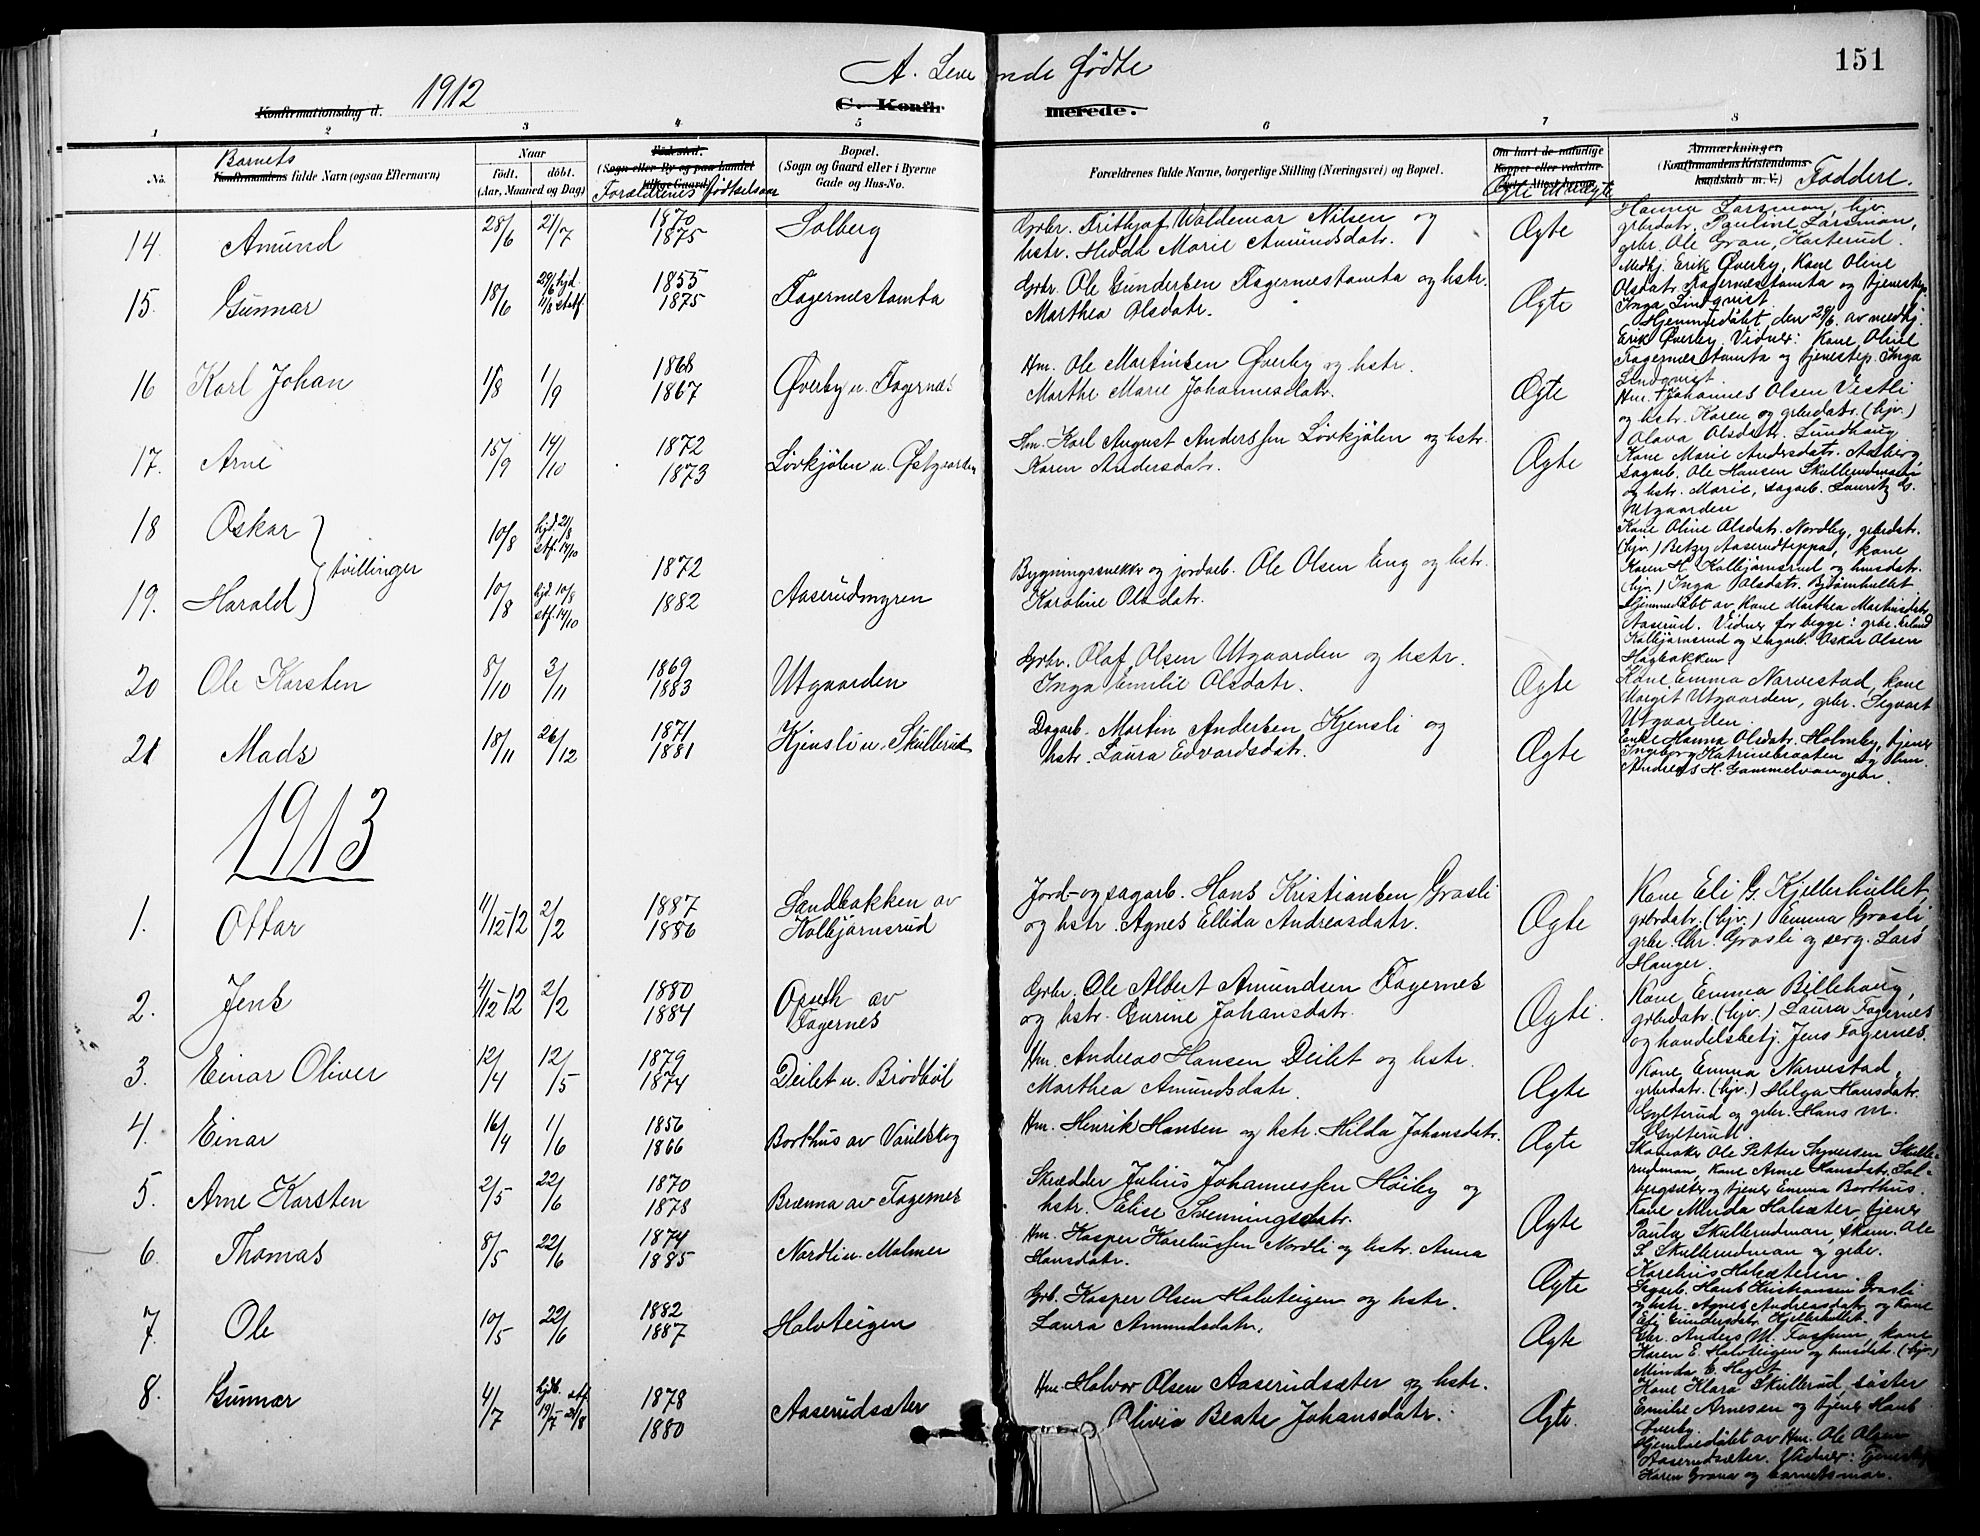 151
A. Levende fødte
1912
Konfirmationsdag d.
C. Konfirmerede.
1 2 3 4 5 6 7 8
No.
Barnets
Konfirmandens fulde Navn (ogsaa Efternavn)
Naar
født. døbt.
(Aar, Maaned og Dag)
Fødested.
(Sogn eller By og paa landet
Forældrenes fødselsaar
Bopæl.
(Sogn og Gaard eller i Byerne
Gade og Hus-No.
Forældrenes fulde Navne, borgerlige Stilling (Næringsvei) og Bopæl.
Om havt de naturlige
Kopper eller vaksine-
Ægte Uægte
Anmærkninger.
(Konfirmandens Kristendoms-
kundskab m. V.)
Faddere.
14 Amund 28/6 21/7 1870 1875 Solberg
Grbr. Frithjof Waldemar Nilsen og
hstr. Hedda Marie Amundsdatr.
Ægte
Hanna Larsmon, hjv.
grbrdatr. Pauline Larsmon,
grbr. Ole Gran, Harterud.
15. Gunnar 18/6 29/6 hjd. 11/8 stadf. 1855 1875 Fagernæstomta
Grbr. Ole Gundersen Fagernæstomta og hstr.
Marthea Olsdatr.
Ægte
Medhj. Erik Øverby, Kone Oline
Olsdatr. Fagernæstomta og tjenestep.
Inga Lindqvist.
Hjemmedøbt den 29/6. av medhj.
Erik Øverby. Vidner: Kone Oline
Fagernæstomta og tjenestep. Inga
Lindqvist.
16 Karl Johan 1/8 1/9 1868 1867 Øverby u. Fagernæs
Hm. Ole Martinsen Øverby og hstr.
Marthe Marie Johannesdatr.
Ægte
Hm. Johannes Olsen Vestli
og hstr. Karen og grbrdatr. (hjv.)
Olava Olsdatr. Lundhaug
17. Arne 15/9 14/10 1872 1873 Lövkjölen u. Østgaarden
Hm. Karl August Anderssen Lövkjölen og hstr.
Karen Andersdatr.
Ægte
Kone Marie Andrsdatr. Aasberg,
sagarb. Ole Hansen Skullerudmoen
og hstr. Marie, sagarb. Lauritz G.
Utgaarden
18 Oskar 10/8 hjd. 21/8 stf. 14/10
19. Harald 10/8 hjd. 10/8 stf. 14/10
tvillinger
1872 1882 Aaserudmyren
Bygningssnekkr og jordarb. Ole Olsen Eng og hstr.
Karoline Olsdatr.
Kone Oline Olsdatr. Nordby, grbrdatr.
(hjv.) Betzy Aaserudteppa, kone
Karen H. Kolbjørnsrud og husdatr.
(hjv.) Inga Olsdatr.
Hjemmedøbt av Kone Marthea Martinsdatr.
Aaserud. Vidner for begge: grbr. Erland
Kolbjørnsrud og sagarb. Oskar Olsen
Høgbakken
20 Ole Karsten 8/10 3/11 1869 1883 Utgaarden
Grbr. Olaf Olsen Utgaarden og hstr.
Inga Emilie Olsdatr.
Ægte
Kone Emma Narvestad, kone
Margit Utgaarden, grbr. Segvart
Utgaarden.
21 Mads 18/11 26/12 1871 1881 Kjensli u. Skullerud
Dagarb. Martin Andersen Kjensli og
hstr. Laura Edvardsdatr.
Ægte
Enke Hanna Olsdatr. Holmby, tjener
Ingeborg Katrinebraaten og hm.
Andreas H. Gammelvangen.
1913
1. Ottar 11/12-12 2/2 1887 1886 Sandbakken av Kolbjørnsrud
Jord- og sagarb. Hans Kristiansen Grasli
og hstr. Agnes Ellida Andreasdatr.
Ægte
Kone Eli G. Kjellerhullet,
grbrdatr. (hjv.) Emma Grasli,
grbr. Chr. Grasli og serg. Lars
Hanger.
2. Jens 4/12-12 2/2 1880 1884 Opseth av Fagernes
Grbr. Ole Albert Amundsen Fagernes
og hstr. Gurine Johansdatr.
Ægte.
Kone Emma Billehaug,
grbrdatr. (hjv.) Laura Fagernes
og handelsbetj. Jens Fagernes.
3. Einar Oliver 12/4 12/5 1879 1874 Deilet u. Brödböl
Hm. Andreas Hansen Deilet og hstr.
Marthea Amundsdatr.
Ægte
Kone Emma Narvestad,
grbrdatr. (hjv.) Helga Hansdatr.
Gylterud og grbr. Hans M.
Gylterud.
4. Einar 16/4 1/6 1856 1866 Borthus av Varildskog
Hm. Henrik Hansen og hstr. Hilda Johansdatr.
Ægte
Skomaker Ole Petter Synersen Skulle-
rudmon, kone Arne Hansdatr. Sol-
bergsæter og tjener Emma Borthus.
5. Arne Karsten 2/5 22/6 1870 1878 Brænna av Fagernes
Skrædder Julius Johannessen Höiby og
hstr. Elise Svenningsdatr.
Ægte
Kone Minda Holsæter, tjener
Paula Skullerudmon, skom. Ole
S. Skullerudmon og grbr.
Karelius Holsæteren.
6. Thomas 8/5 22/6 1874 1885 Nordli u. Malmer
Hm. Kasper Kareliussen Nordli og hstr. Anna
Hansdatr.
Ægte
Sagarb. Hans Kristiansen Grasli
og hstr. Agnes Andreasdatr. og kone
Eli Gundersdtr. Kjellerhullet.
7. Ole 10/5 22/6 1882 1887 Halvteigen
Grb. Kasper Olsen Halvteigen og hstr.
Laura Amundsdatr.
Ægte
Gbr. Anders M. Fossum, kone
Karen E. Halvteigen og husdtr. (hjv.)
Minda E. Haget.
8. Gunnar 4/7 hjdb. 19/7 stf. 24/8 1878 1880 Aaserudsæter
Hm. Halvor Olsen Aaserudsæter og hstr.
Olivia Beate Johansdatr.
Ægte.
Kone Klara Skullerud, søster
Emilie Arnesen og tjener Hans
Øverby.
Hjemmedøbt av Hm. Ole Olsen
Aaserudsæter. Vidner: Tjenestep.
Karen Grana og barnets mor.